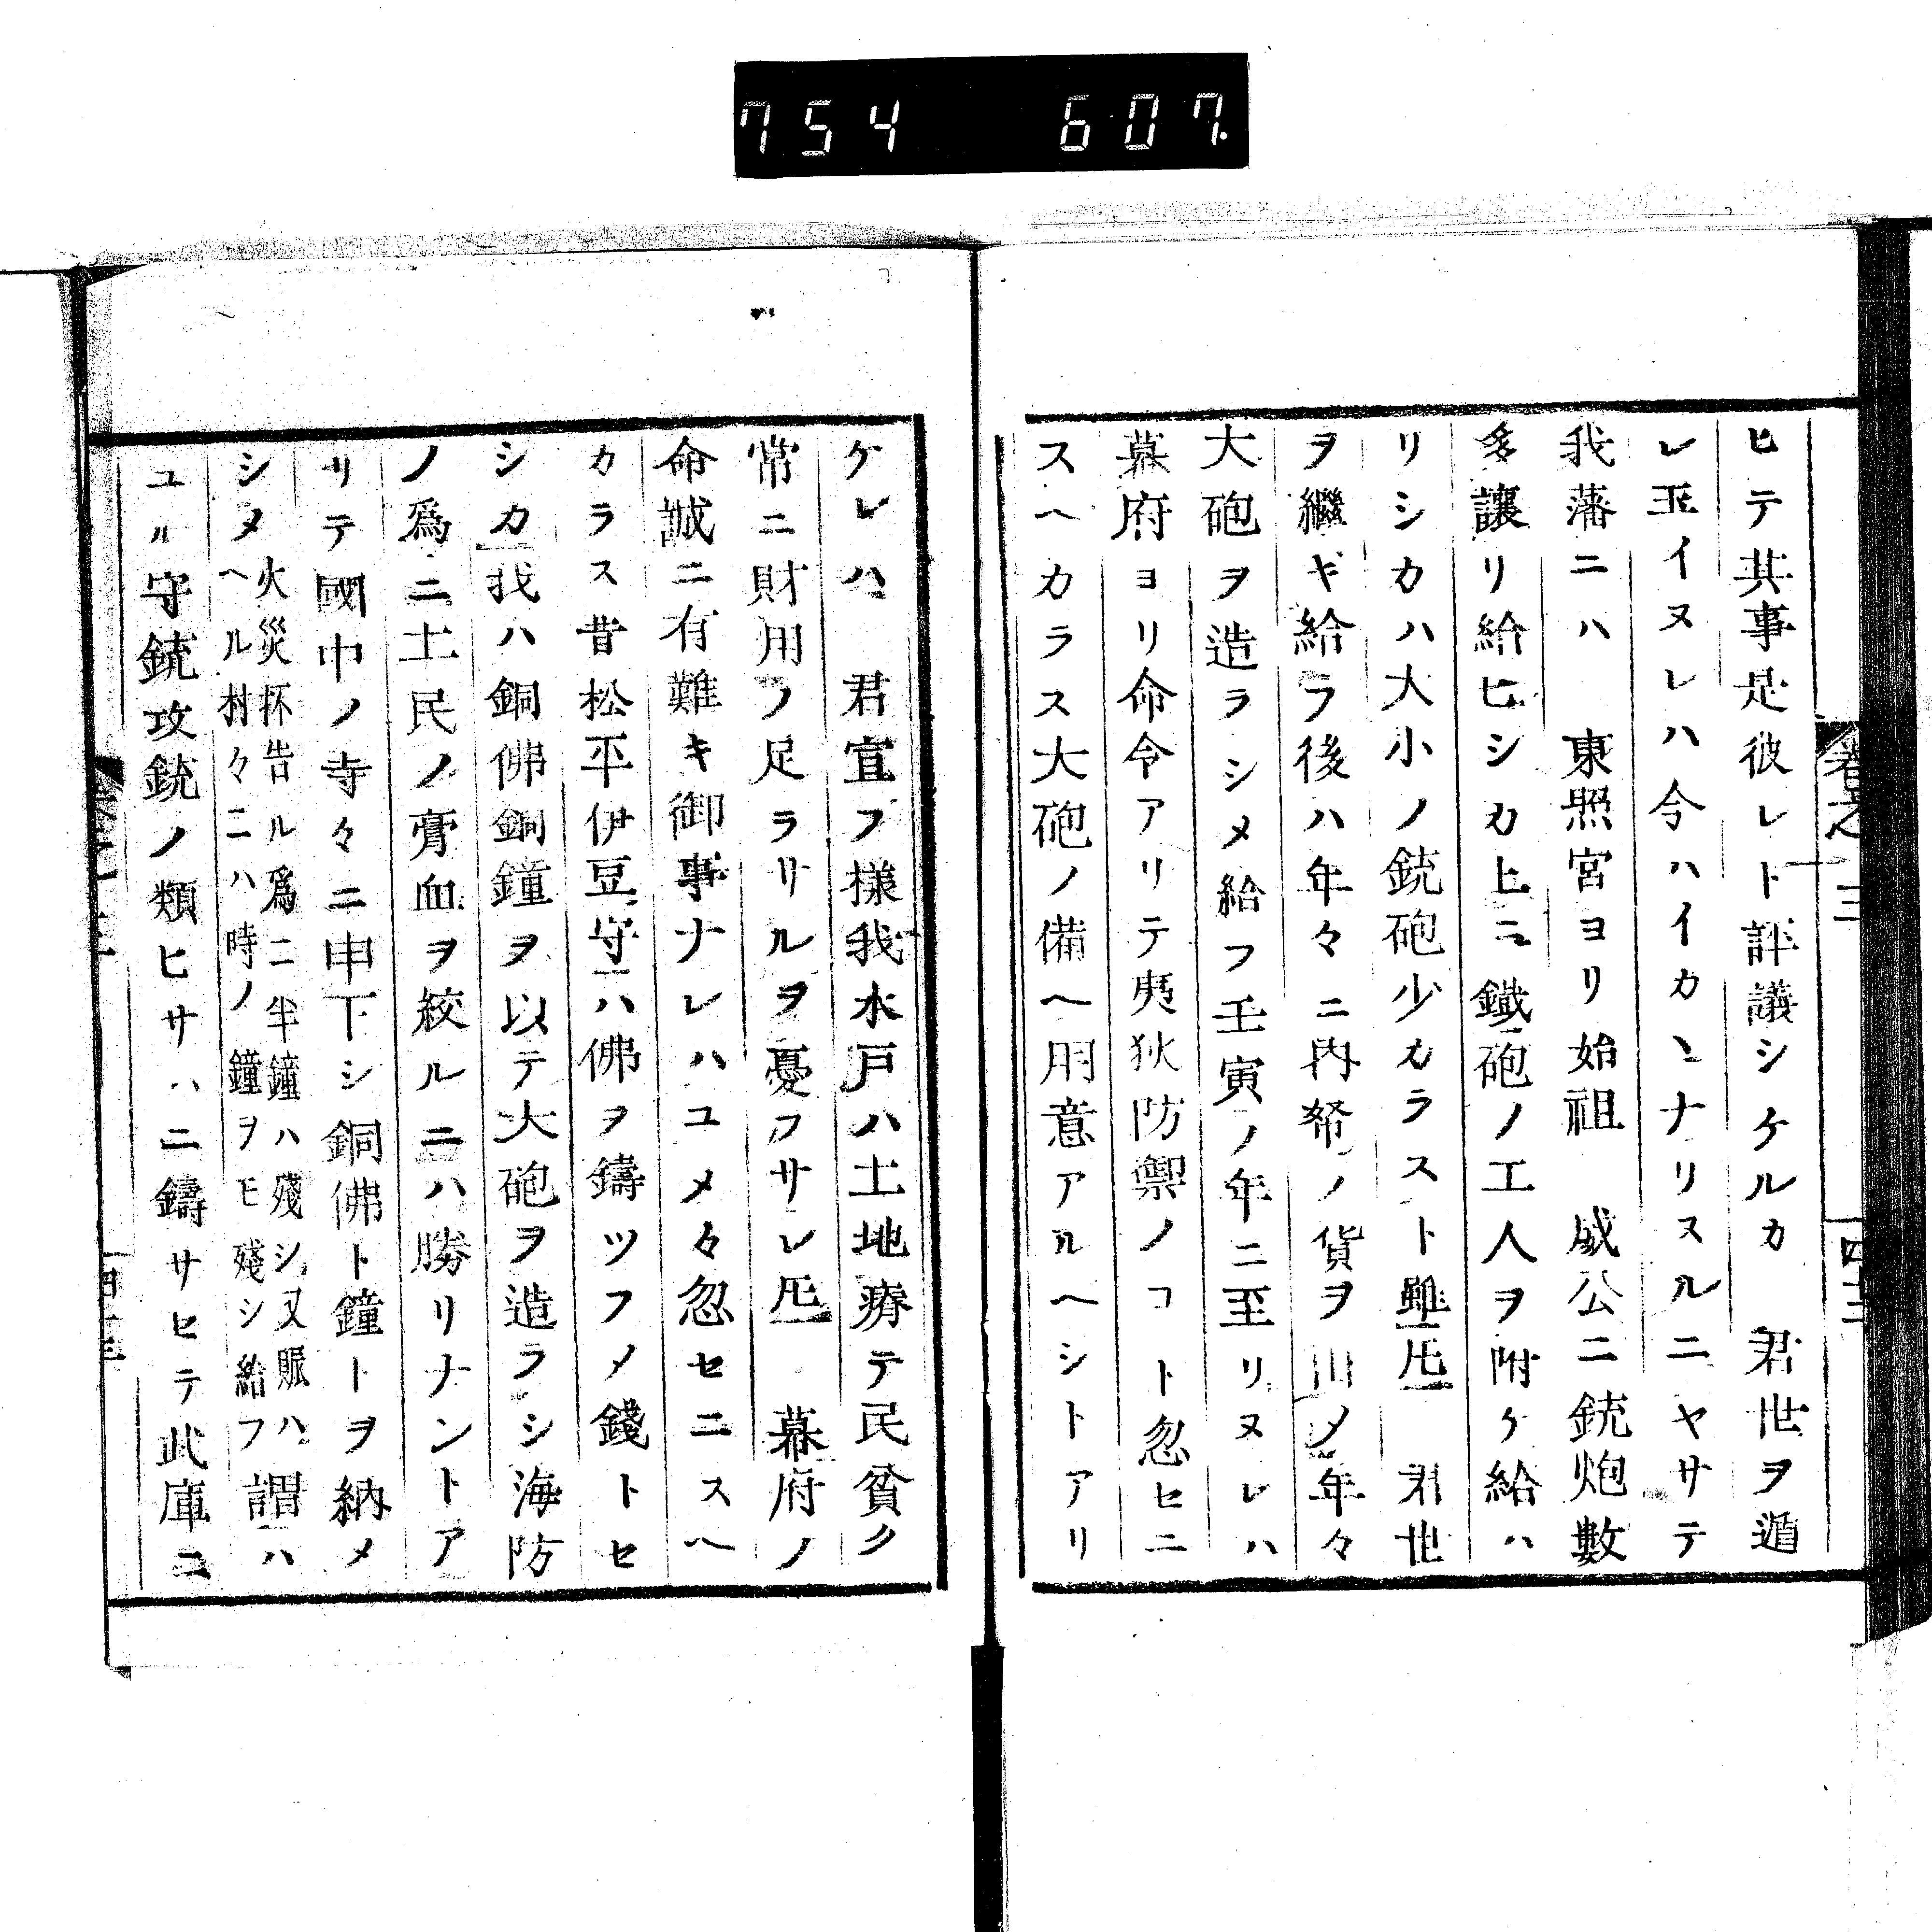 754 607.
卷之三
四十二
ヒテ其事是彼レト評議シケルカ 君世ヲ遁
レ玉イヌレハ今ハイカヽナリヌルニヤサテ
我藩ニハ 東照宮ヨリ始祖 威公ニ銃炮數
多讓リ給ヒシカ上ニ鐵砲ノ工人ヲ附ケ給ハ
リシカハ大小ノ銃砲少カラスト雖𪜈 君世
ヲ繼ギ給フ後ハ年々ニ内帑ノ貨ヲ出メ年々
大砲ヲ造ラシメ給フ壬寅ノ年ニ至リヌレハ
幕府ヨリ命令アリテ夷狄防禦ノコト忽ヒニ
スヘカラス大砲ノ備へ用意アルヘシトアリ
ケレハ 君宣フ様我水戸ハ土地瘠テ民貧ク
常ニ財用ノ足ラリルヲ憂フサレ𪜈 幕府ノ
命誠ニ有難キ御事ナレハユメ々忽セニスヘ
カラス昔松平伊豆守ハ佛ヲ鑄ツフメ錢トセ
シカ我ハ銅佛銅鐘ヲ以テ大砲ヲ造ラシ海防
ノ爲ニ土民ノ膏血ヲ絞ルニハ勝リナントア
リテ國中ノ寺々ニ申下シ銅佛ト鐘トヲ納メ
シメ
火災抔告ル爲ニ半鐘ハ殘シ又賑ハ
ヘル村々ニハ時ノ鐘ヲモ殘シ給フ
謂ハ
ユル守銃攻銃ノ類ヒサハニ鑄サセテ武庫ニ